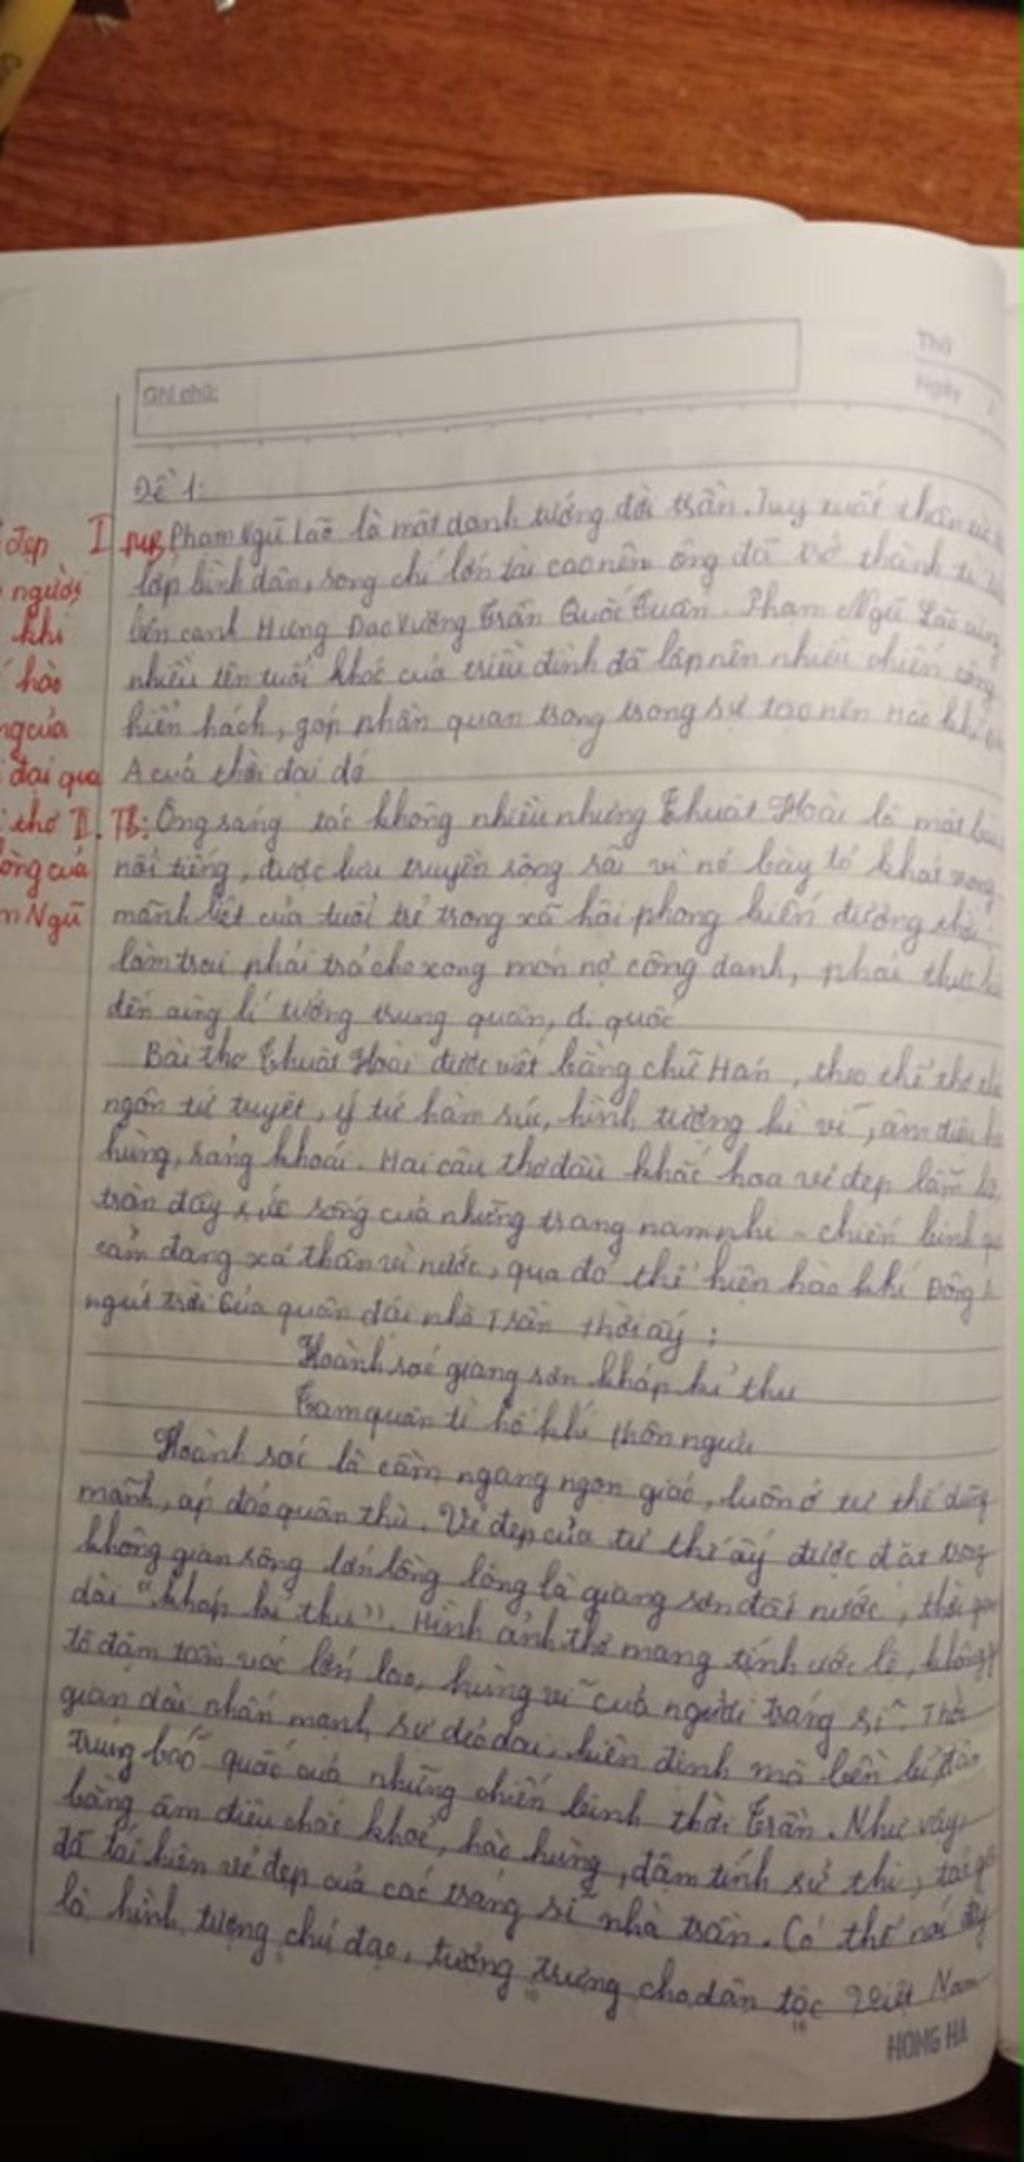 Thứ
Ghi chú:
Ngày
Đề 1:
đẹp I MB Phạm Ngũ Lão là một danh tướng đời trần. Tuy xuất thân
người lớp bình dân, song chí lớn tài cao nên ông đã trở thành
khi bên cạnh Hưng Đạo Vương Trần Quốc Tuấn. Phạm Ngũ Lão cùng
hào nhiều tên tuổi khác của triều đình đã lập nên nhiều chiến công
của hiển hách, góp phần quan trọng trong sự tạo nên hào khí
đại qua A của thời đại đó
thơ II. TB: Ông sáng tác không nhiều nhưng Thuật Hoài là một bài
lòng của nổi tiếng, được lưu truyền rộng rãi vì nó bày tỏ khát vọng
Ngũ mãnh liệt của tuổi trẻ trong xã hội phong kiến đương thời:
làm trai phải trả cho xong món nợ công danh, phải thực
đến cùng lí tưởng trung quân, ái quốc
Bài thơ Thuật Hoài được viết bằng chữ Hán, theo thể thơ
ngôn tứ tuyệt, ý tứ hàm súc, hình tượng kì vĩ, âm điệu
hùng, sảng khoái. Hai câu thơ đầu khắc hoạ vẻ đẹp lẫm
tràn đầy sức sống của những trang nam nhi - chiến binh
cảm đang xả thân vì nước, qua đó thể hiện hào khí Đông A
ngút trời của quân đội nhà Trần thời ấy:
Hoành sóc giang sơn kháp kỉ thu
Tam quân tì hổ khí thôn ngưu
Hoành sóc là cầm ngang ngọn giáo, luôn ở tư thế dũng
mãnh, áp đảo quân thù. Vẻ đẹp của tư thế ấy được đặt trong
không gian rộng lớn lồng lộng là giang sơn đất nước, thời gian
dài "kháp kỉ thu". Hình ảnh thơ mang tính ước lệ, không
tô đậm tầm vóc lớn lao, hùng vĩ của người tráng sĩ. Thời
gian dài nhấn mạnh sự dẻo dai, kiên định mà bền bỉ,
trung báo quốc của những chiến binh thời Trần. Như vậy,
bằng âm điệu chắc khoẻ, hào hùng, đậm tính sử thi, tác giả
đã tái hiện vẻ đẹp của các tráng sĩ nhà trần. Có thể nói đây
là hình tượng chủ đạo, tượng trưng cho dân tộc Việt Nam
HONG HA